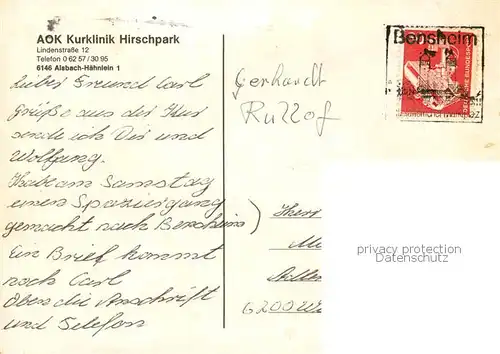 AOK Kurklinik Hirschpark
Lindenstraße 12
Telefon 0 62 57 / 30 95
6146 Alsbach-Hähnlein 1
Lieber Freund Carl
Grüße aus der Kur
sende ich Dir und
Wolfgang.
Habe am Samstag
einen Spaziergang
gemacht nach Bensheim
Ein Brief kommt
noch Carl
Oben die Anschrift
und Telefon
Gerhardt
Rullof
Bensheim
Herr
6200
privacy protection
Datenschutz